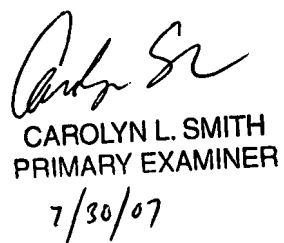 CAROLYN L. SMITH
PRIMARY EXAMINER
7/30/07